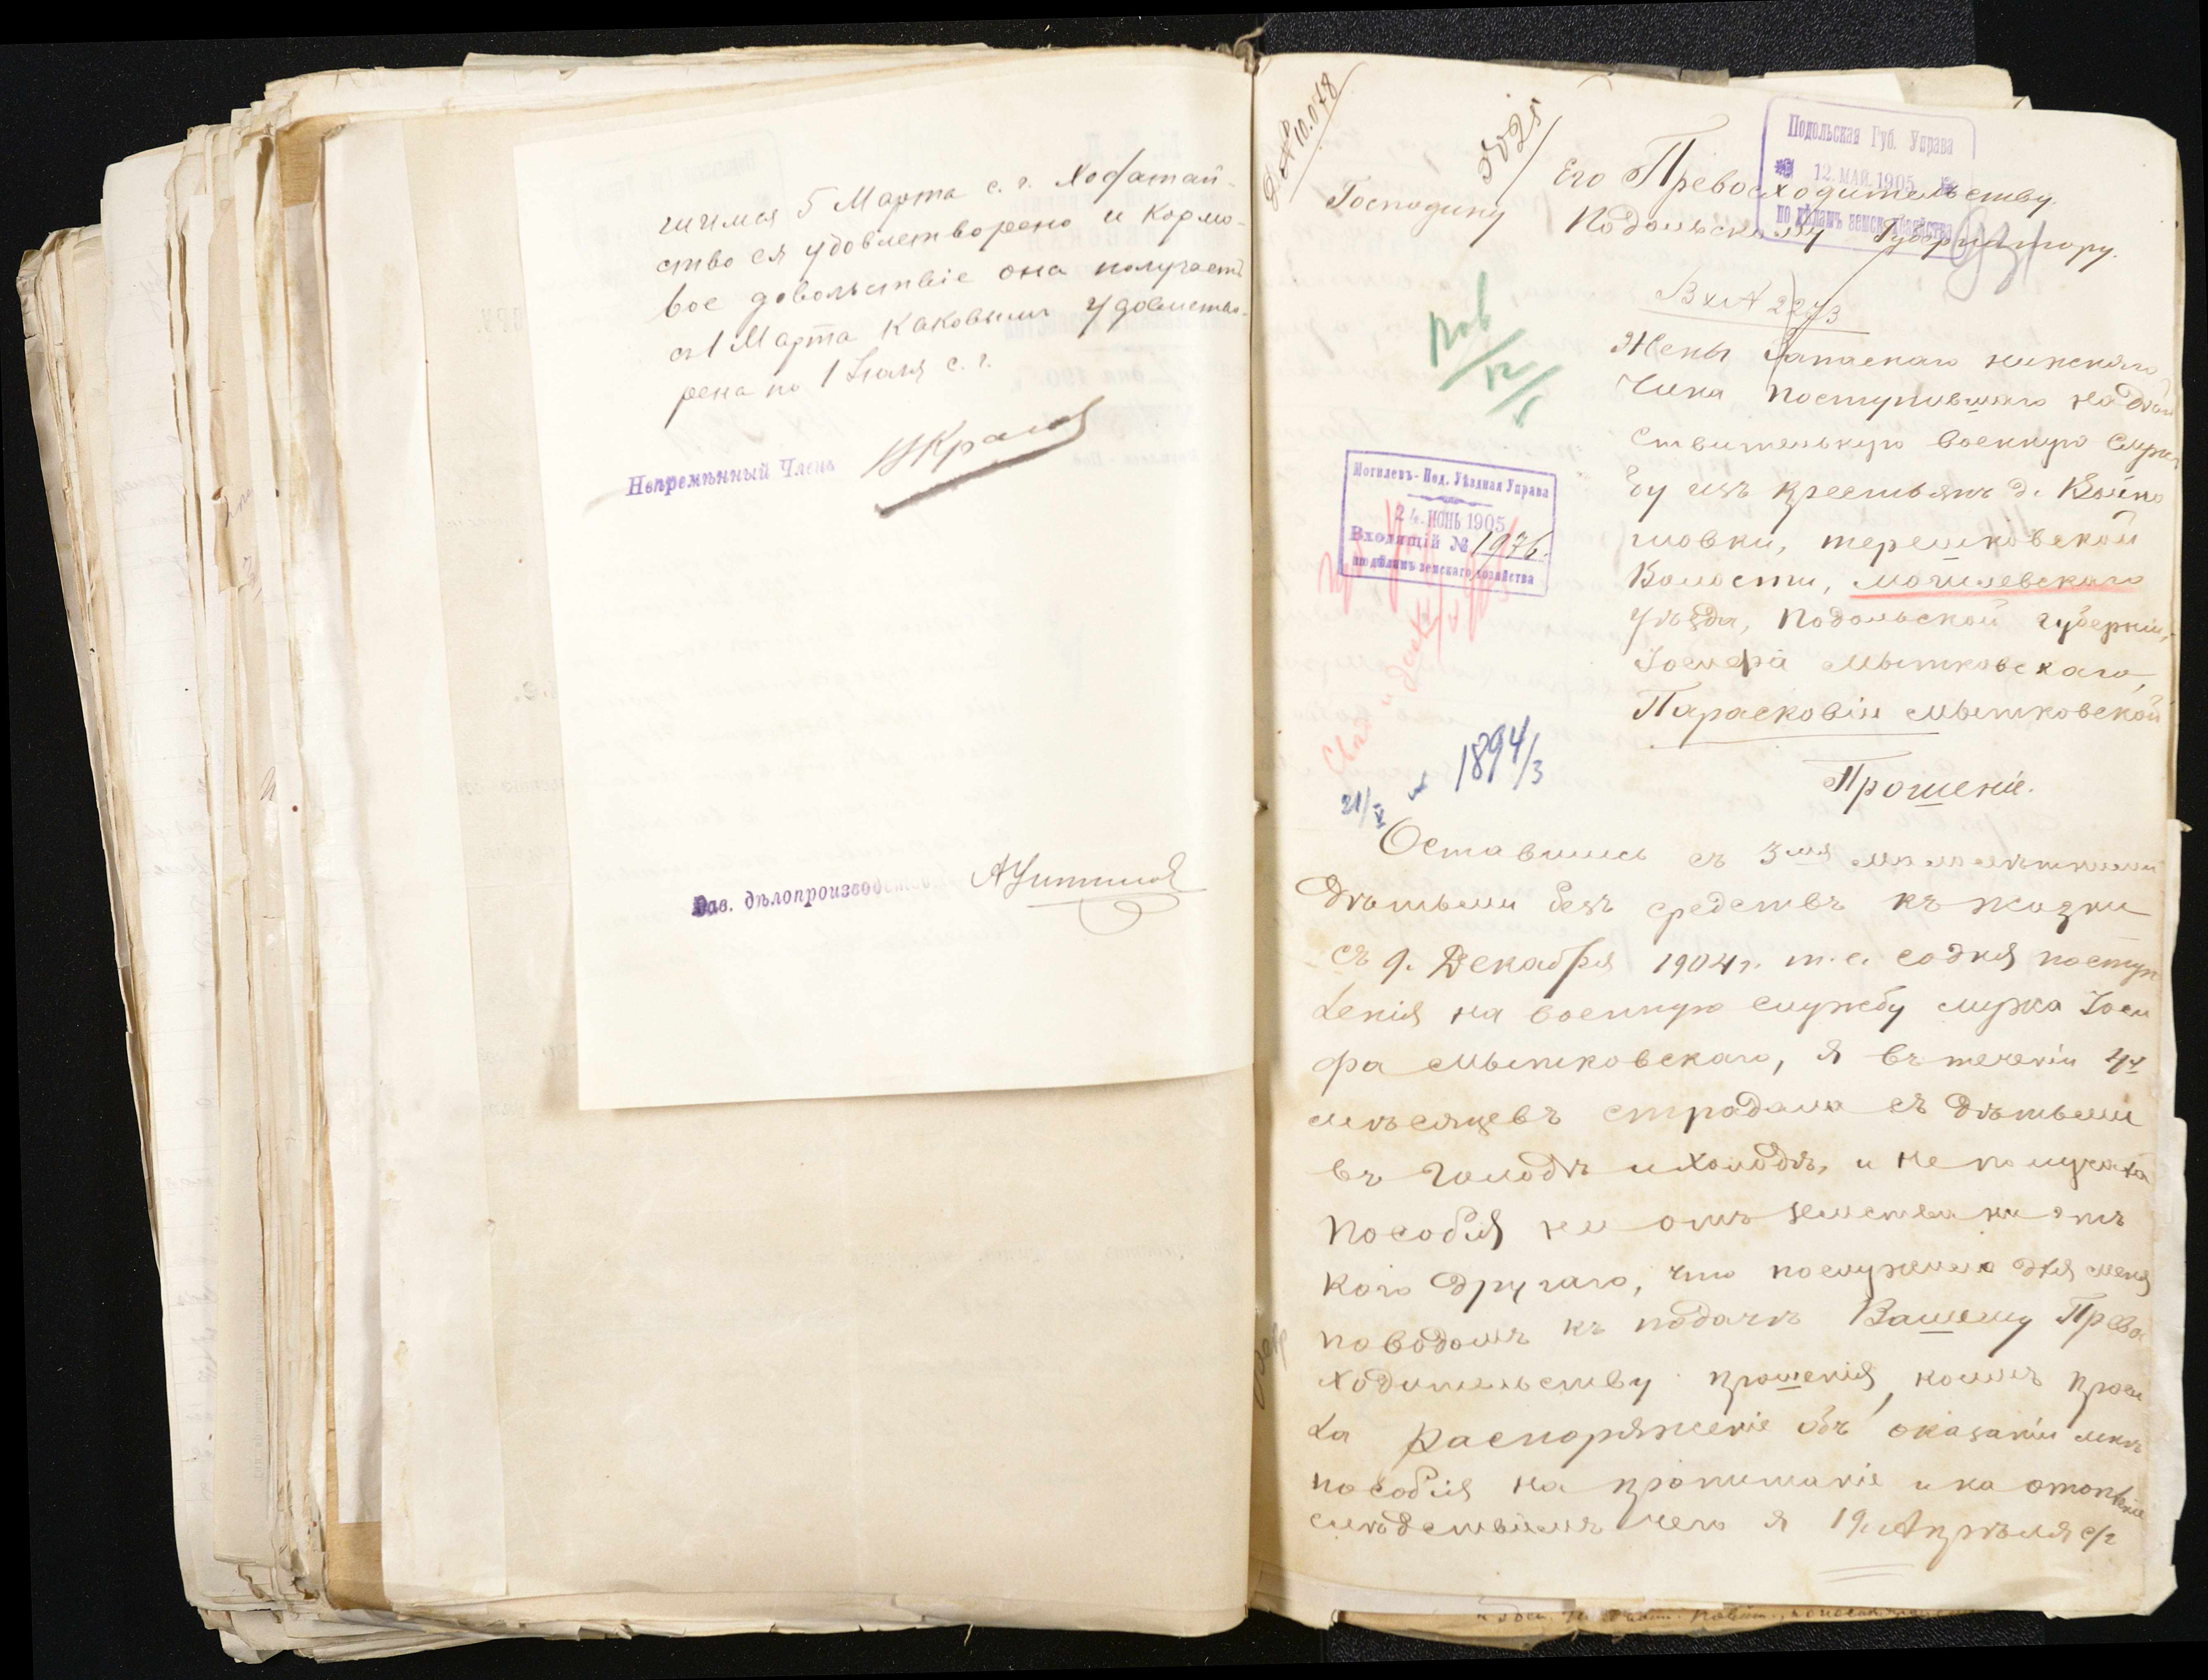 чимся 5 Марта с. г. Ходатай-
ство ея удовлетворено и кормо-
вое довольствіе она получаетъ
съ 1 Марта каковымъ удовлетво-
рена по 1 Іюля с. г.
Непремѣнный Членъ
Зав. дѣлопроизводствомъ
№ 10.078
5025
Подольская Губ. Управа
12. МАЙ. 1905
по дѣламъ земск. хозяйства
Его Превосходительству
Господину Подольскому Губернатору.
Вх № 2273
Жены Запаснаго нижняго
Чина поступившаго на дѣй
ствительную военную служ
бу изъ крестьянъ д.
шовки,
Волости, могилевскаго
уѣзда, Подольской губерніи,
Іосифа Мытковскаго,
Парасковіи Мытковской
Могилевъ-Под. Уѣздная Управа
24. ИЮНЬ 1905
Входящій № 1976.
по дѣламъ земскаго хозяйства
1894/3
21/V
Прошеніе.
Оставшись съ 3мя малолѣтними
дѣтьми безъ средствъ къ жизни
съ 9. Декабря 1904 г. т. е. со дня поступ
ленія на военную службу мужа Іоси
фа Мытковскаго, я въ теченіи 4х
мѣсяцевъ страдала съ дѣтьми
въ голодѣ и холодѣ, и не получала
пособія ни отъ земства ни отъ
кого другаго, что послужило для меня
поводомъ къ подачѣ Вашему Прево
ходительству прошенія, коимъ проси
ла распоряженіе объ оказаніи мнѣ
пособія на пропитаніе и на отопленіе
слѣдствіемъ чего я 19. Апрѣля с/г